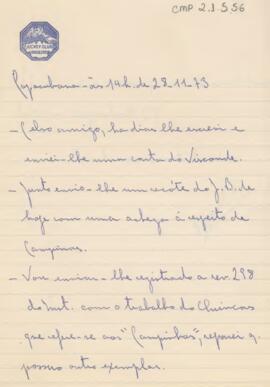 CMP 2.1.5.56
JOCKEY CLUB
Copacabana - às 14h. de 28-11-73
- Celso amigo, ha dias lhe escrevi e
enviei-lhe uma carta do Visconde.
- Junto envio-lhe um recorte do J.B. de
hoje com uma achega á respeito de
Campinas.
- Vou enviar-lhe registrado a rev. 298
do Inst. com o trabalho do
que refere-se aos "Campinhos",
possuo outro exemplar.